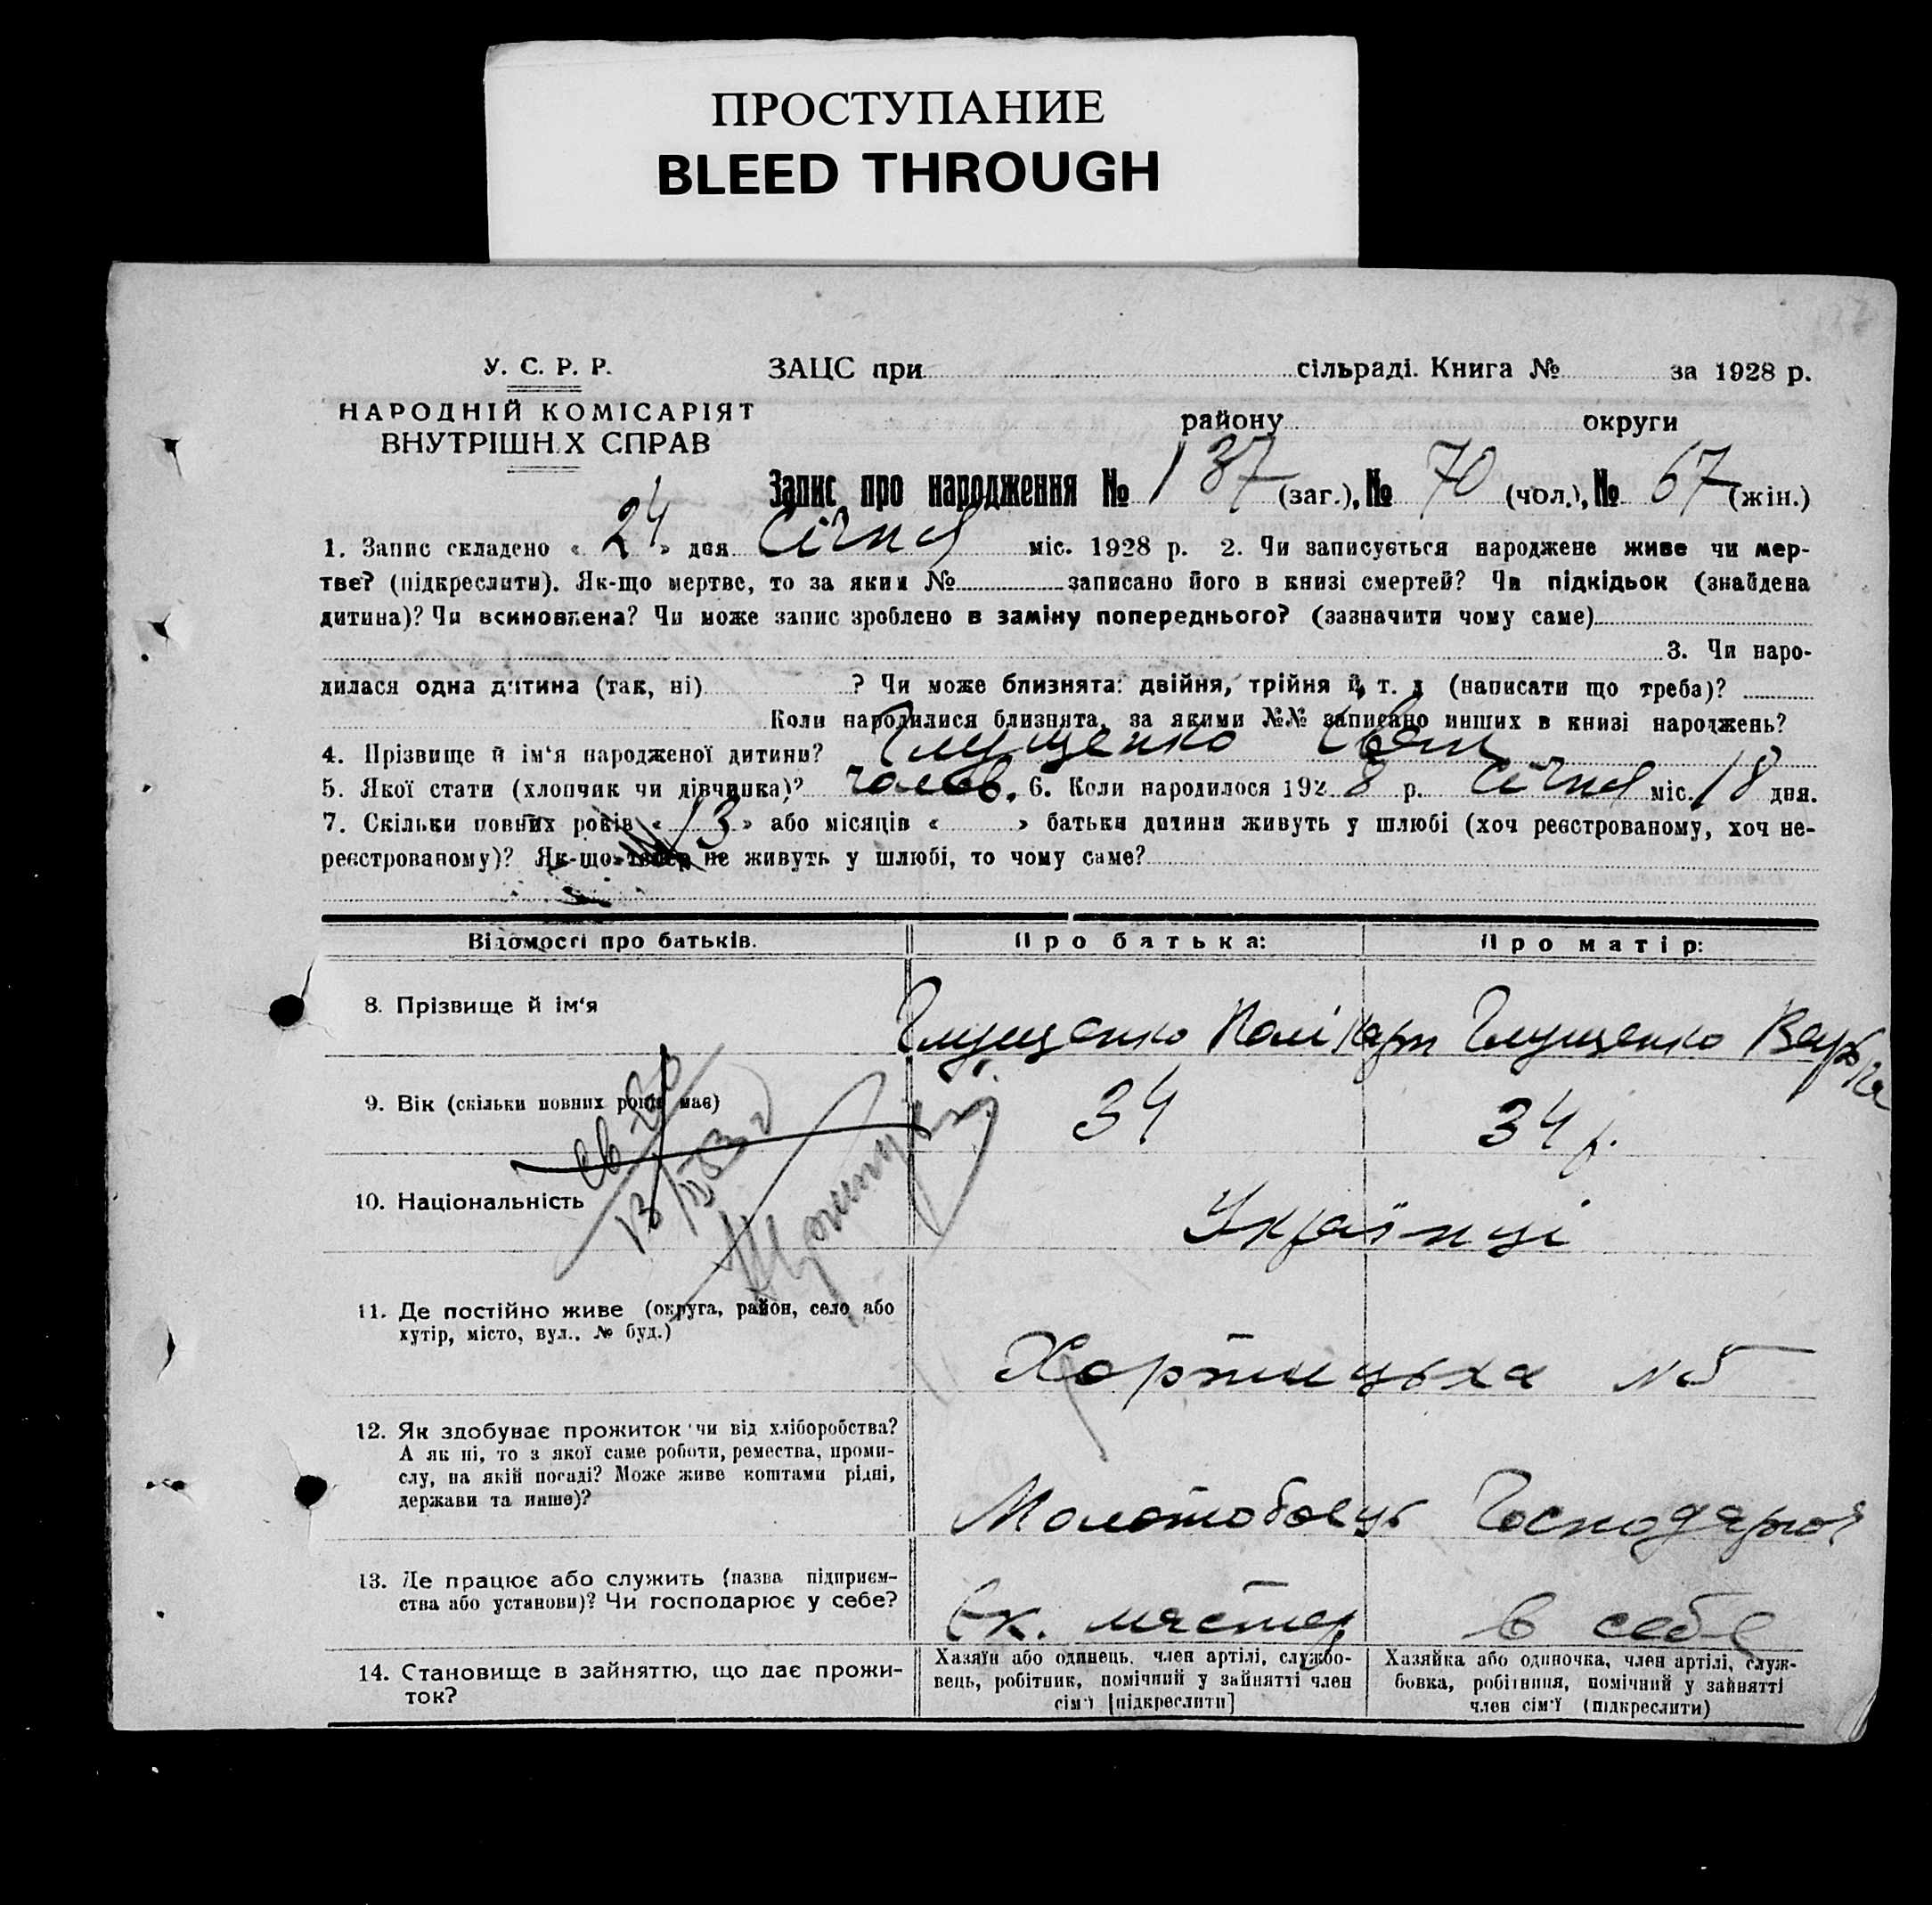 ПРОСТУПАНИЕ
BLEED THROUGH
У. С. Р. Р.
НАРОДНІЙ КОМІСАРІЯТ
ВНУТРІШН.Х СПРАВ
ЗАЦС при сільраді. Книга № за 1928 р.
району округи
Запис про народження № 137 (заг.), № 70 (чол.), № 67 (жін.)
1. Запис складено « 24 » дня Січня міс. 1928 р. 2. Чи записується народжене живе чи мер-
тве? (підкреслити). Як-що мертве, то за яким № записано його в книзі смертей? Чи підкідьок (знайдена
дитина)? Чи всиновлена? Чи може запис зроблено в заміну попереднього? (зазначити чому саме)
3. Чи наро-
дилася одна дитина (так, ні) ? Чи може близнята: двійня, трійня й т. д (написати що треба)?
Коли народилися близнята, за якими №№ записано инших в книзі народжень?
4. Прізвище й ім'я народженої дитини? Глущенко Іван
5. Якої стати (хлопчик чи дівчинка)? голов. 6. Коли народилося 192 8 р. Січня міс. 18 дня.
7. Скільки повних років « 13 » або місяців « » батьки дитини живуть у шлюбі (хоч реєстрованому, хоч не-
реєстрованому)? Як-що тепер не живуть у шлюбі, то чому саме?
Відомості про батьків. Про батька: Про матір:
8. Прізвище й ім'я Глущенко Полікарп Глущенко Варька
9. Вік (скільки повних років має) 34 34 р.
10. Національність Українці
11. Де постійно живе (округа, район, село або
хутір, місто, вул., № буд.)
Хортицька №5
12. Як здобуває прожиток чи від хліборобства?
А як ні, то з якої саме роботи, ремества, проми-
слу, на якій посаді? Може живе коштами рідні,
держави та инше)?
Молотобоєць Господарює
13. Де працює або служить (назва підприєм-
ства або установи)? Чи господарює у себе?
Єк. мастер в себе
14. Становище в зайняттю, що дає прожи-
ток?
Хазяїн або одинець, член артілі, службо-
вець, робітник, помічний у зайнятті член
сім'ї [підкреслити]
Хазяйка або одиночка, член артілі, служ-
бовка, робітниця, помічний у зайнятті
член сім'ї (підкреслити)